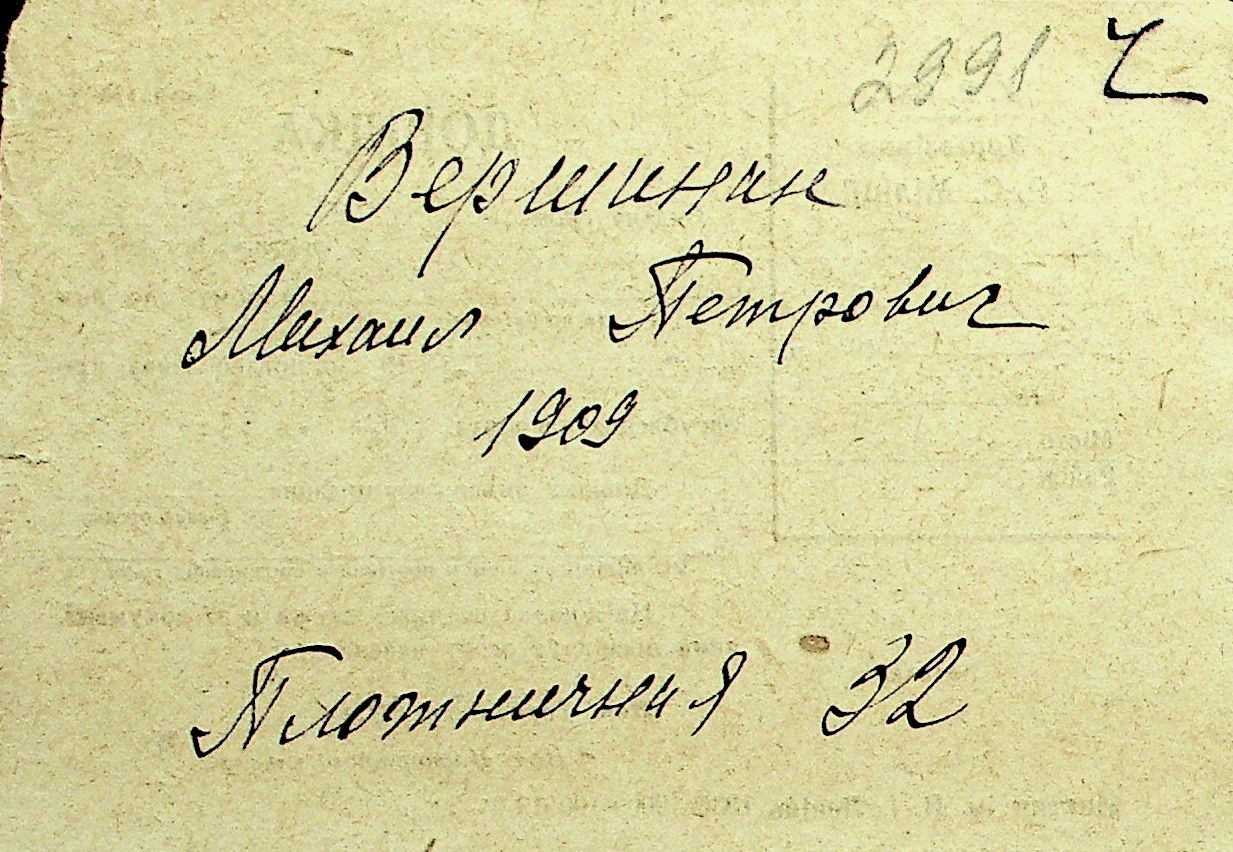 2991 Ч
Вершинин
Михаил Петрович
1909
Плотничная 32